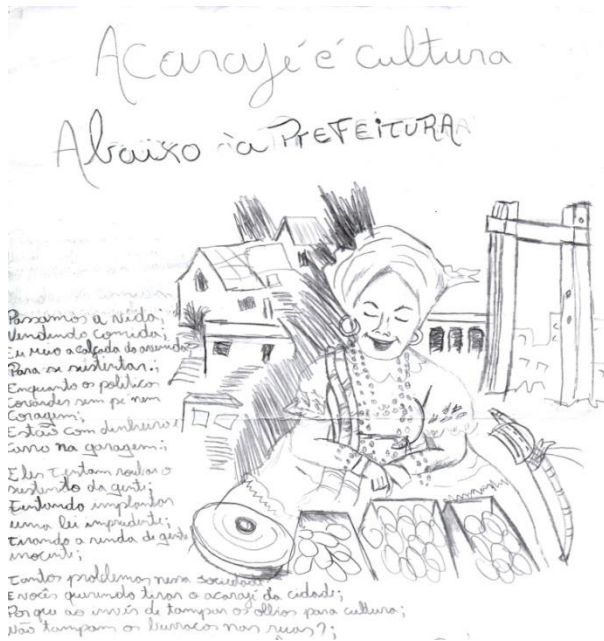 Acarajé é cultura
Abaixo à PrEFEiTURA
Passamos a vida;
Vendendo comida;
Em meio a calçada da avenida
Para se sustentar.;
Enquanto os politicos
covardes sem pé nem
Coragem;
Estão com dinheiro e
carro na garagem.;
Eles Tentam roubar o
sustento da gente;
Tentando implantar
uma lei imprudente;
Tirando a renda de gente
inocente;
Tantos problemas nessa sociedade
E vocês querendo tirar o acarajé da cidade;
Por que ao invés de tampar os olhos para cultura;
Não tampam os burracos nas ruas?;